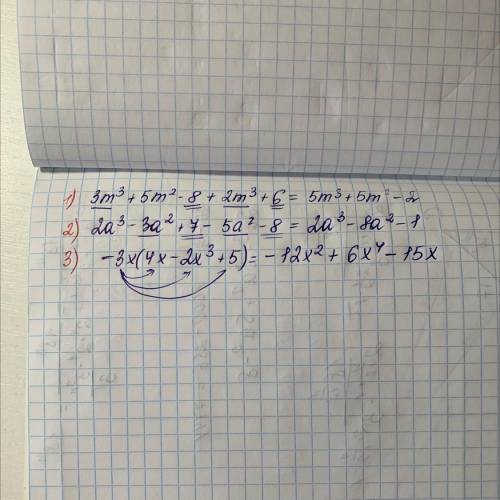 1) 3m³ + 5m² - 8 + 2m³ + 6 = 5m³ + 5m² - 2
2) 2a³ - 3a² + 7 - 5a² - 8 = 2a³ - 8a² - 1
3) -3x(4x - 2x³ + 5) = -12x² + 6x⁴ - 15x